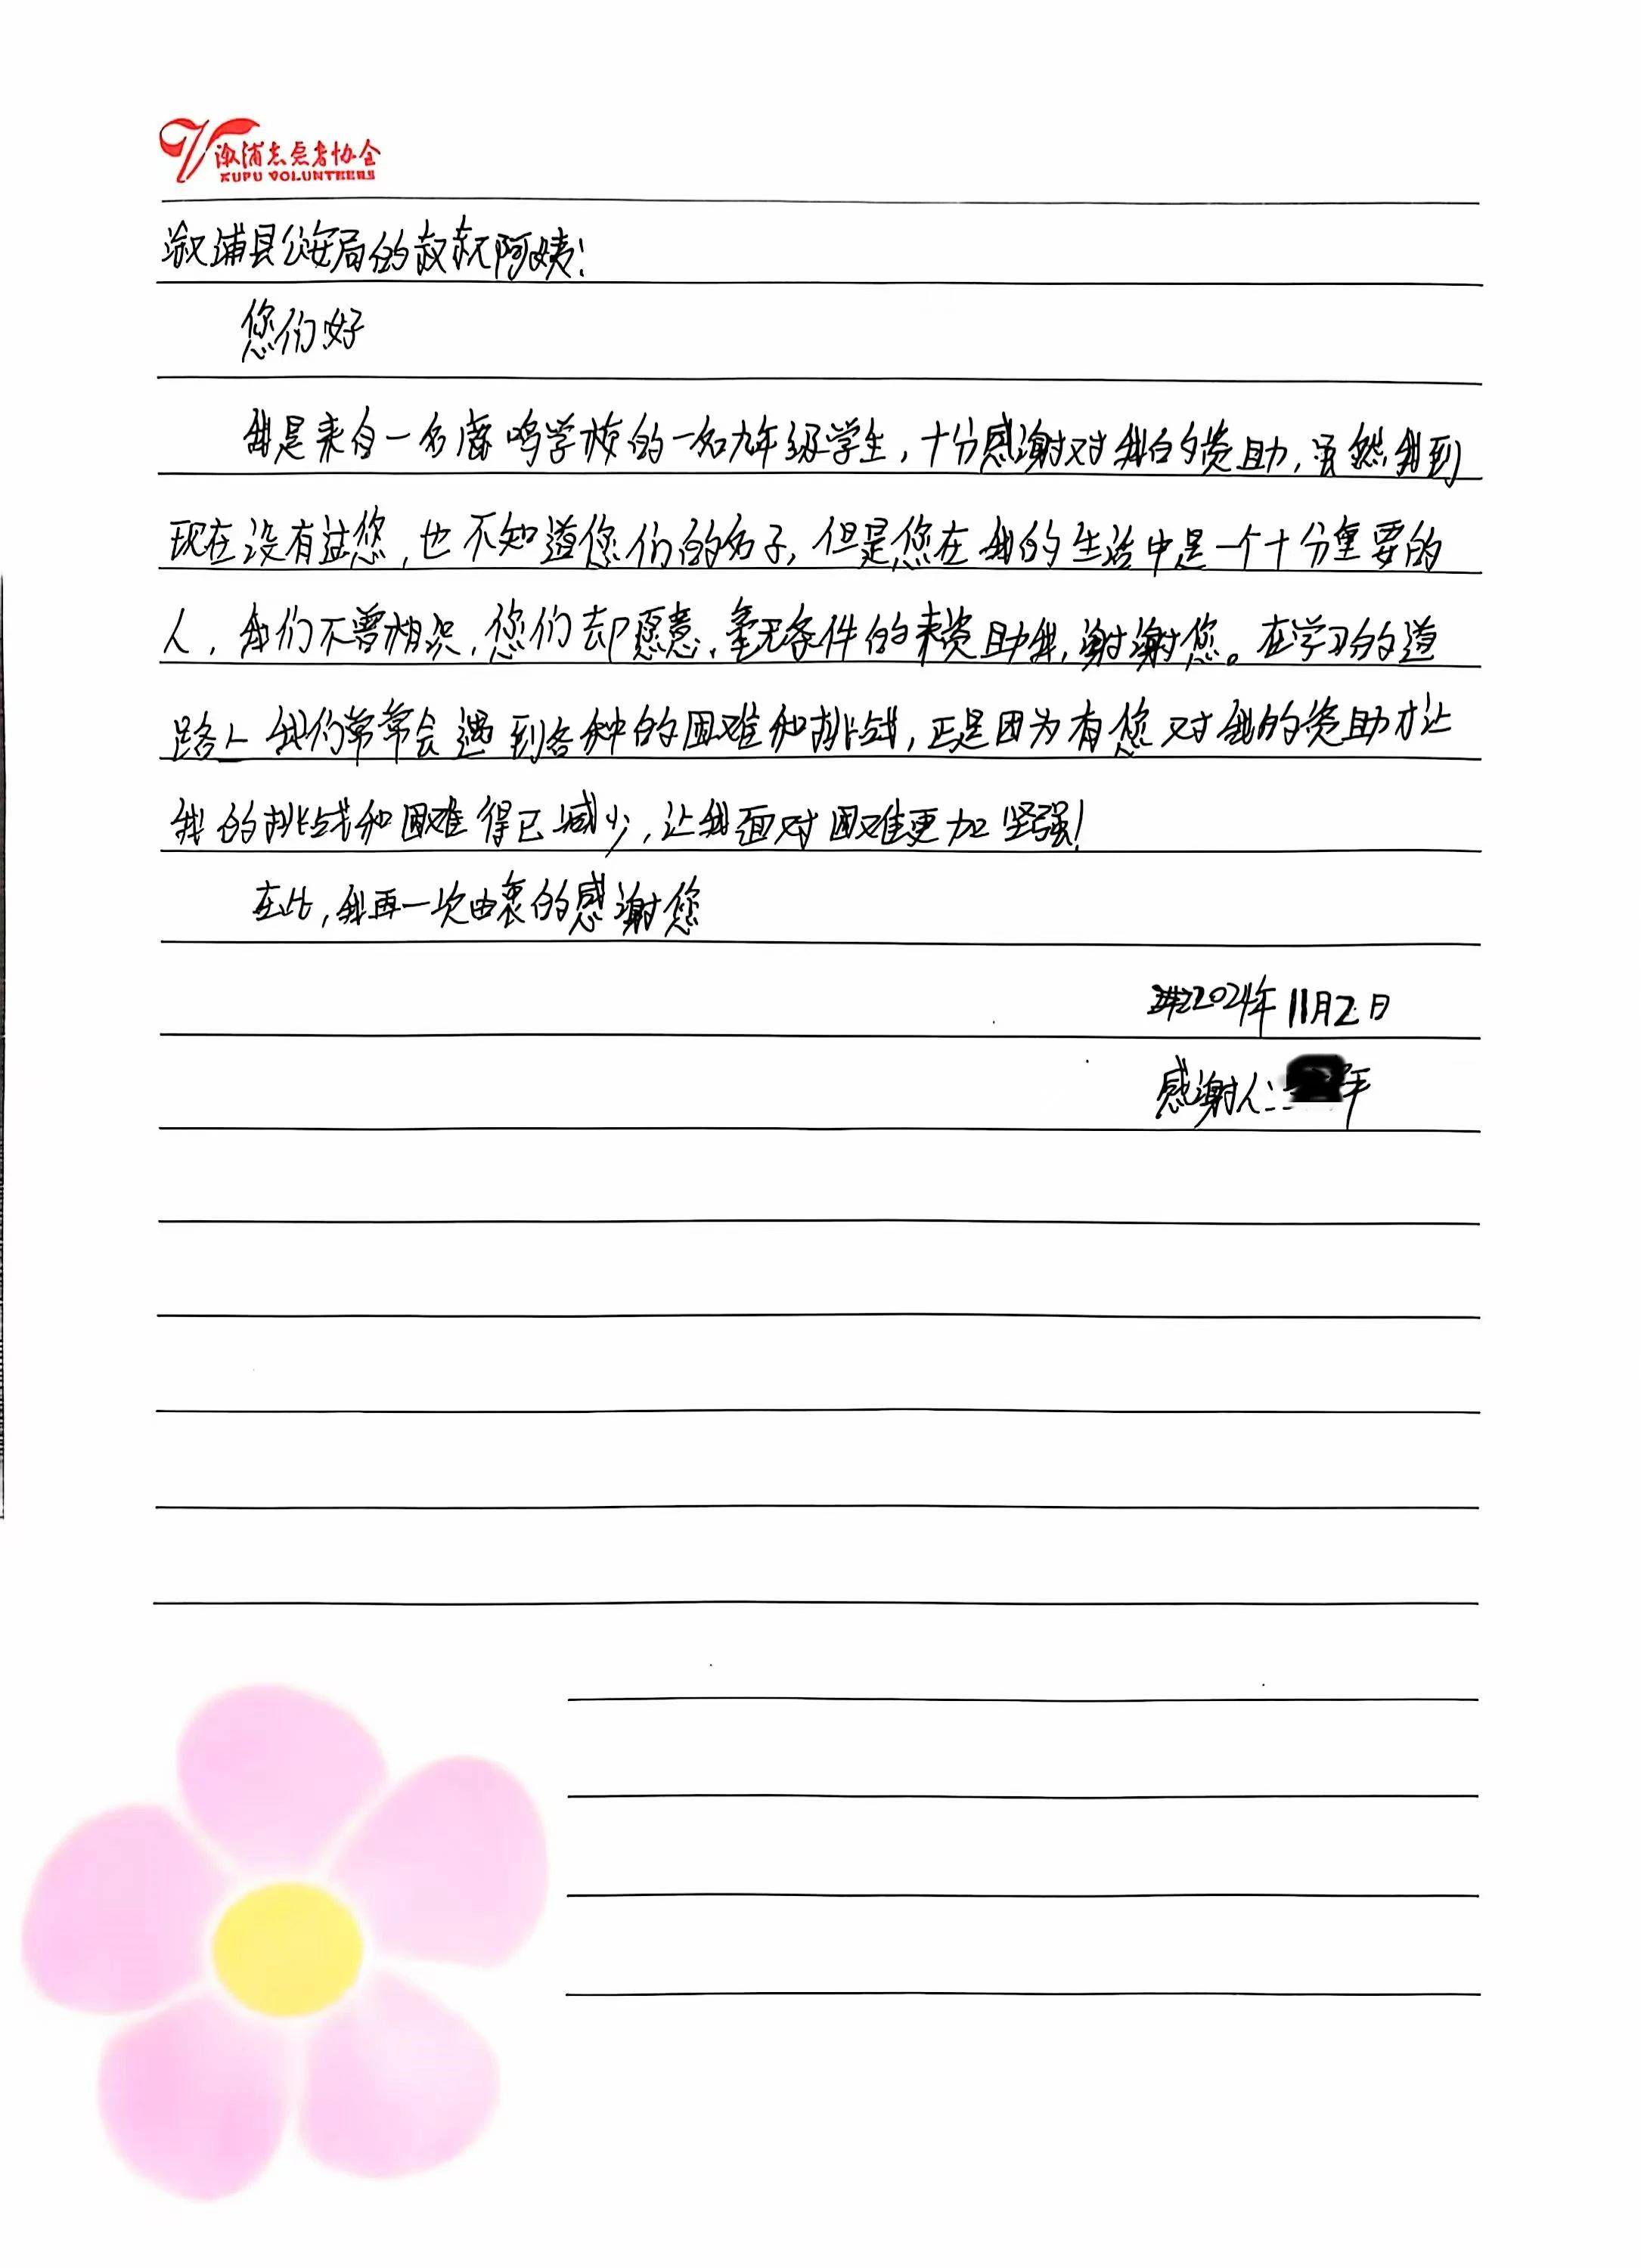 溆浦志愿者协会
XUPU VOLUNTEERS
溆浦县公安局的叔叔阿姨：
您们好
我是来自一名鹿鸣学校的一名九年级学生，十分感谢对我的资助，虽然我到
现在没有过您，也不知道您们的名子，但是您在我的生活中是一个十分重要的
人，我们不曾相识，您们却愿意，毫无条件的来资助我，谢谢您。在学习的道
路上我们常常会遇到各种的困难和挑战，正是因为有您对我的资助才让
我的挑战和困难得已减少，让我面对困难更加坚强！
在此，我再一次由衷的感谢您
2024年11月2日
感谢人：